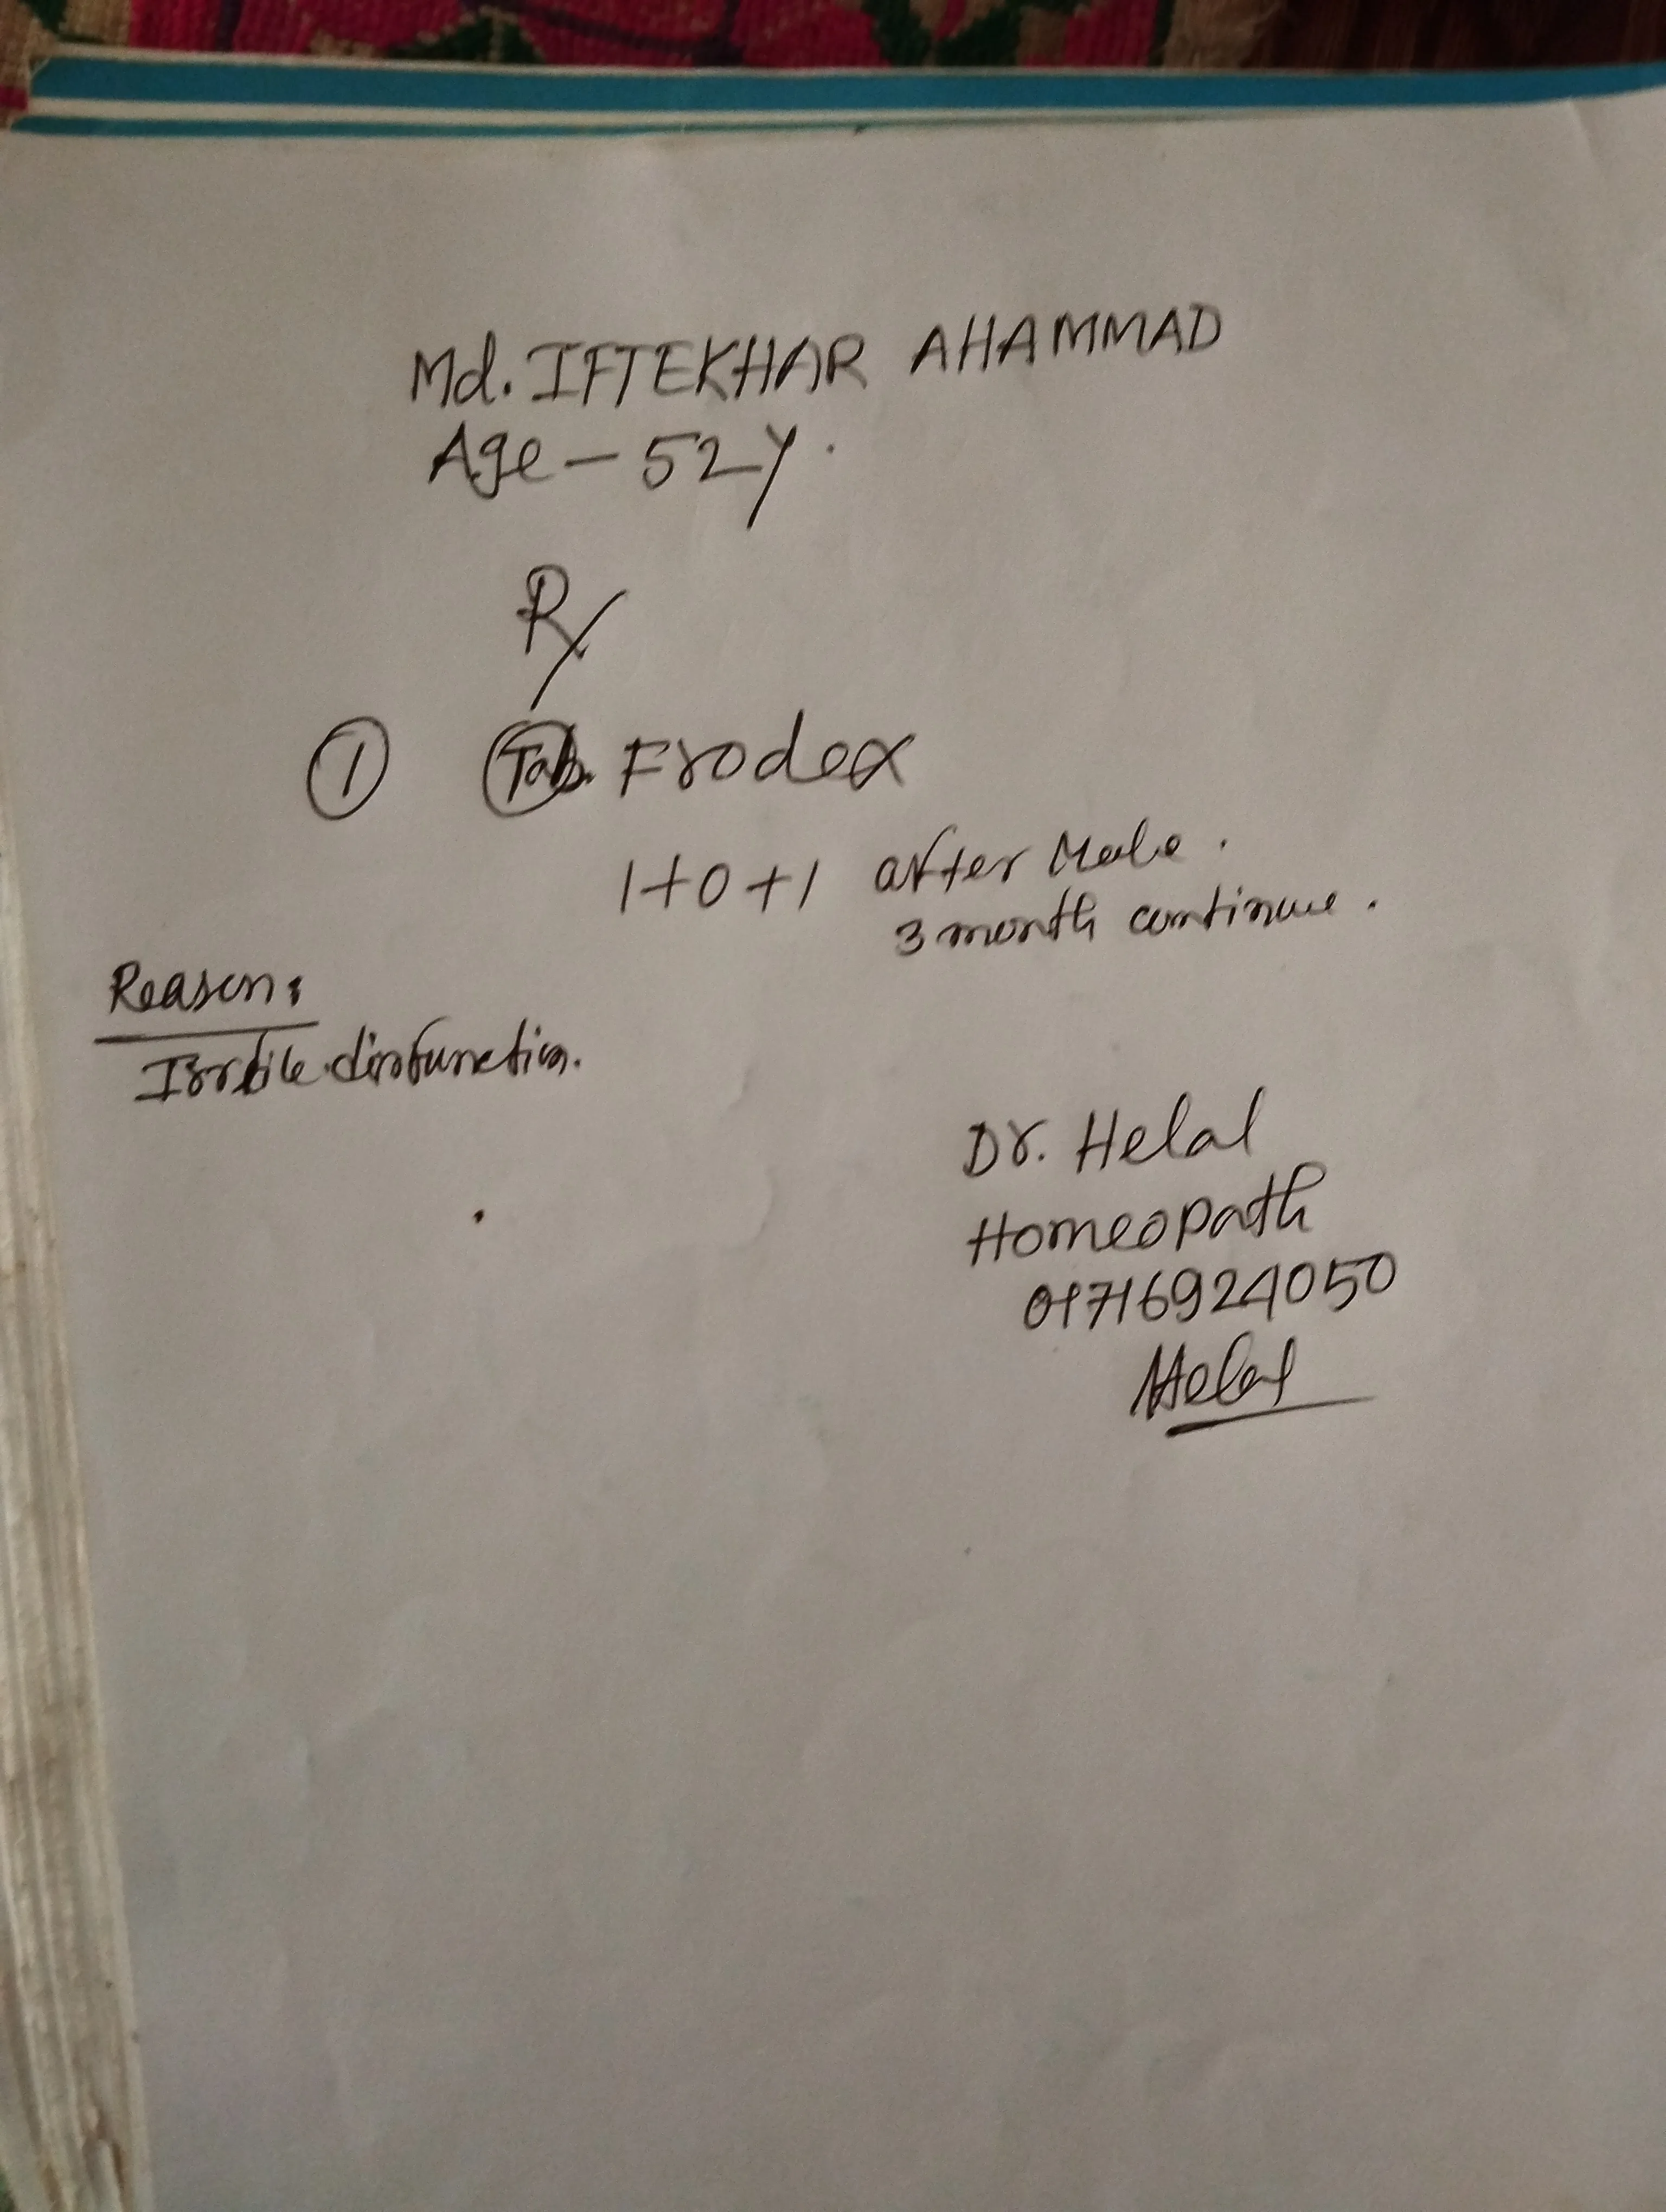 Md. IFTEKHAR AHAMMAD
Age - 52y.
Rx
① Tab. Frodex
1+0+1 after Male.
3 month continue.
Reason:
disfunction.
Dr. Helal
Homeopath
01716924050
Helal